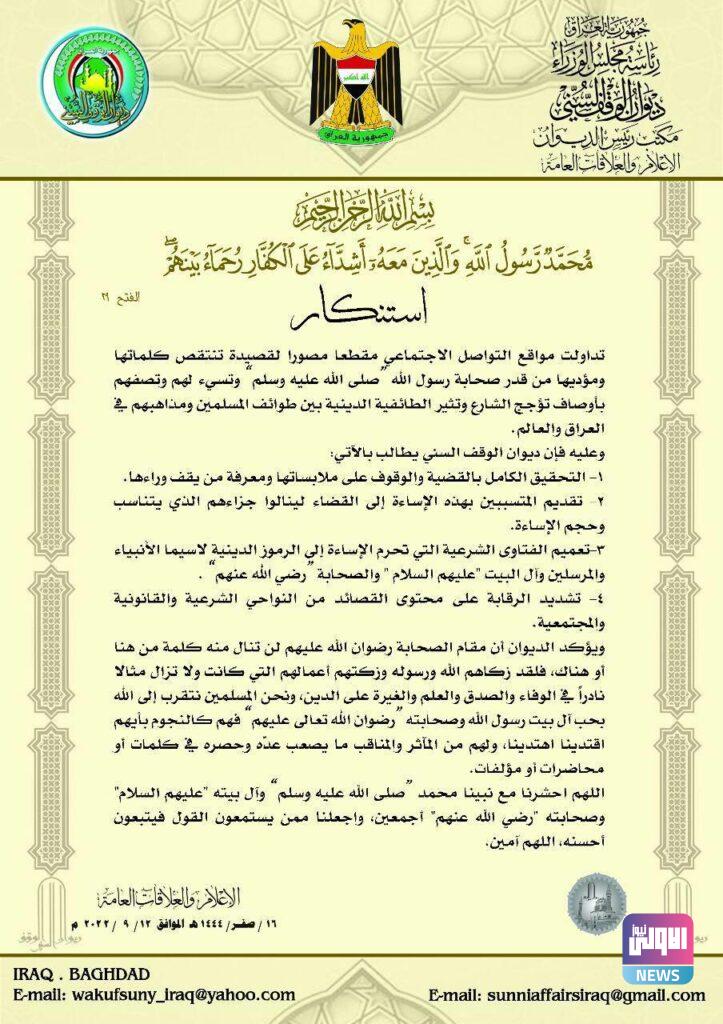 جمهورية العراق
رئاسة مجلس الوزراء
ديوان الوقف السني
مكتب رئيس الديوان
الإعلام والعلاقات العامة
الله أكبر
جمهورية العراق
بسم الله الرحمن الرحيم
مُّحَمَّدٌ رَّسُولُ ٱللَّهِ ۚ وَٱلَّذِينَ مَعَهُۥٓ أَشِدَّآءُ عَلَى ٱلْكُفَّارِ رُحَمَآءُ بَيْنَهُمْ ۖ
الفتح ٢٩
استنكار
تداولت مواقع التواصل الاجتماعي مقطعا مصورا لقصيدة تنتقص كلماتها
ومؤديها من قدر صحابة رسول الله "صلى الله عليه وسلم" وتسيء لهم وتصفهم
بأوصاف تؤجج الشارع وتثير الطائفية الدينية بين طوائف المسلمين ومذاهبهم في
العراق والعالم.
وعليه فإن ديوان الوقف السني يطالب بالآتي:
١- التحقيق الكامل بالقضية والوقوف على ملابساتها ومعرفة من يقف وراءها.
٢- تقديم المتسببين بهذه الإساءة إلى القضاء لينالوا جزاءهم الذي يتناسب
وحجم الإساءة.
٣-تعميم الفتاوى الشرعية التي تحرم الإساءة إلى الرموز الدينية لاسيما الأنبياء
والمرسلين وآل البيت "عليهم السلام " والصحابة "رضي الله عنهم" .
٤- تشديد الرقابة على محتوى القصائد من النواحي الشرعية والقانونية
والمجتمعية.
ويؤكد الديوان أن مقام الصحابة رضوان الله عليهم لن تنال منه كلمة من هنا
أو هناك، فلقد زكاهم الله ورسوله وزكتهم أعمالهم التي كانت ولا تزال مثالا
نادراً في الوفاء والصدق والعلم والغيرة على الدين، ونحن المسلمين نتقرب إلى الله
بحب آل بيت رسول الله وصحابته "رضوان الله تعالى عليهم" فهم كالنجوم بأيهم
اقتدينا اهتدينا، ولهم من المآثر والمناقب ما يصعب عدّه وحصره في كلمات أو
محاضرات أو مؤلفات.
اللهم احشرنا مع نبينا محمد "صلى الله عليه وسلم" وآل بيته "عليهم السلام"
وصحابته "رضي الله عنهم" أجمعين، واجعلنا ممن يستمعون القول فيتبعون
أحسنه، اللهم آمين.
الإعلام والعلاقات العامة
١٦/ صفر/ ١٤٤٤ هـ الموافق ١٢/ ٩ /٢٠٢٢ م
الاولى نيوز
NEWS
IRAQ . BAGHDAD
E-mail: wakufsuny_iraq@yahoo.com
E-mail: sunniaffairsiraq@gmail.com